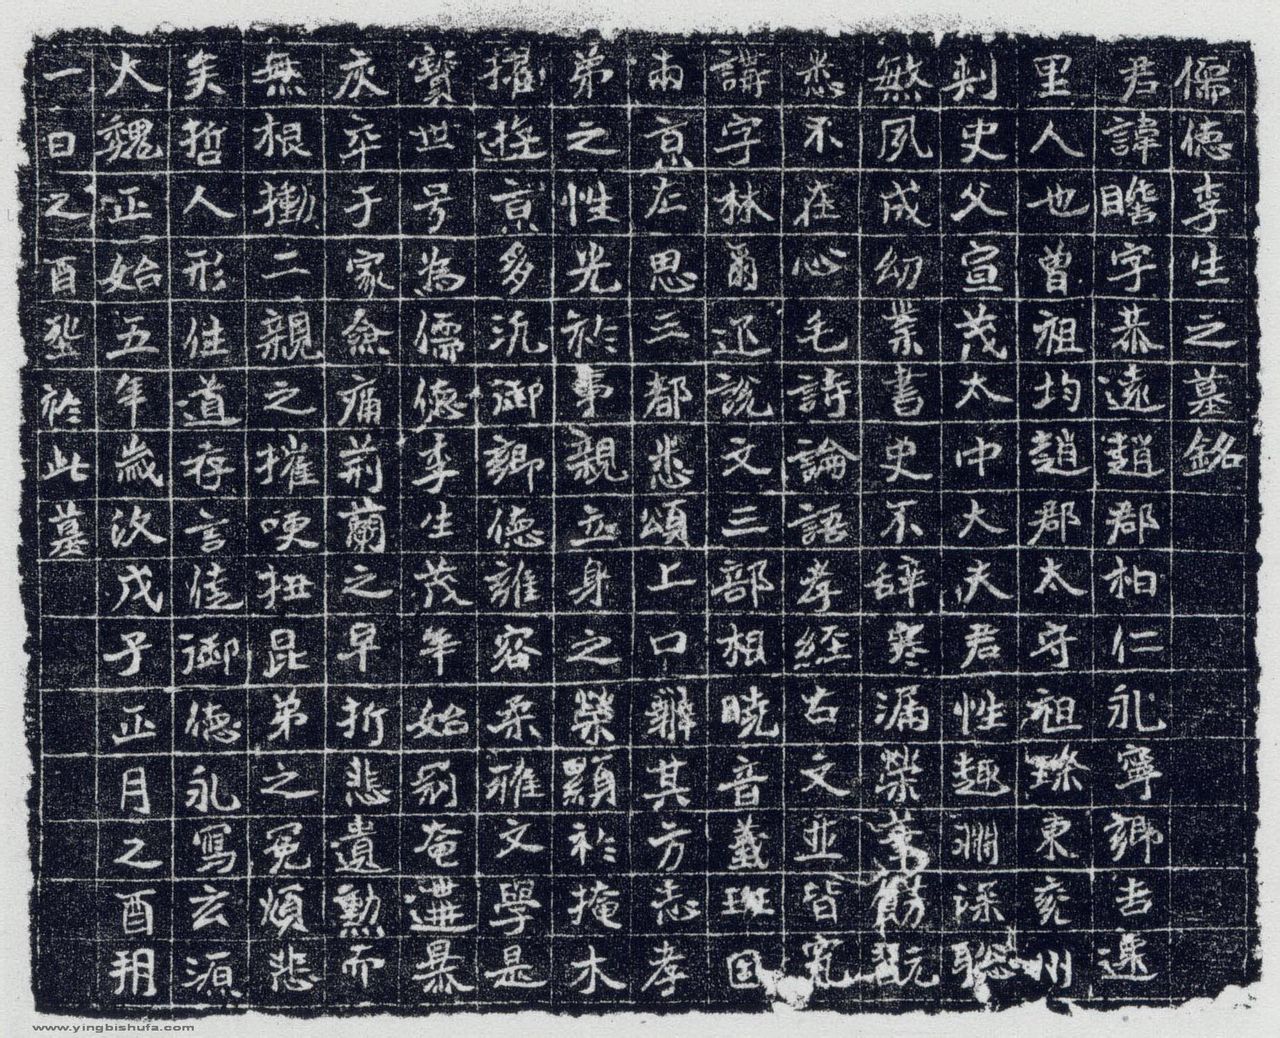 儒德李生之墓銘
君諱瞻字恭遠趙郡柏仁永寧鄉吉遷
里人也曾祖均趙郡太守祖璨東兗州
刺史父宣茂太中大夫君性趣淵深聡
敏夙成幼業書史不辞寒漏翫
悉不在心毛詩論語孝經古文並皆究
講字林爾迩說文三部相曉音義班固
兩京左思三都悉頌上口辯其方志孝
弟之性光於事親立身之榮顯於掩木
擢遊京多汎御鄉德誰容柔雅文學是
寶世号為儒德李生茂年始奄遘暴
疾卒于家僉痛荊蘭之早折悲遺勲而
無根慟二親之摧哽抽昆弟之冤煩悲
矣哲人形住道存言御德永寫玄源
大魏正始五年歲次戊子正月之酉朔
一日之酉塟於此墓
www.yingbishufa.com